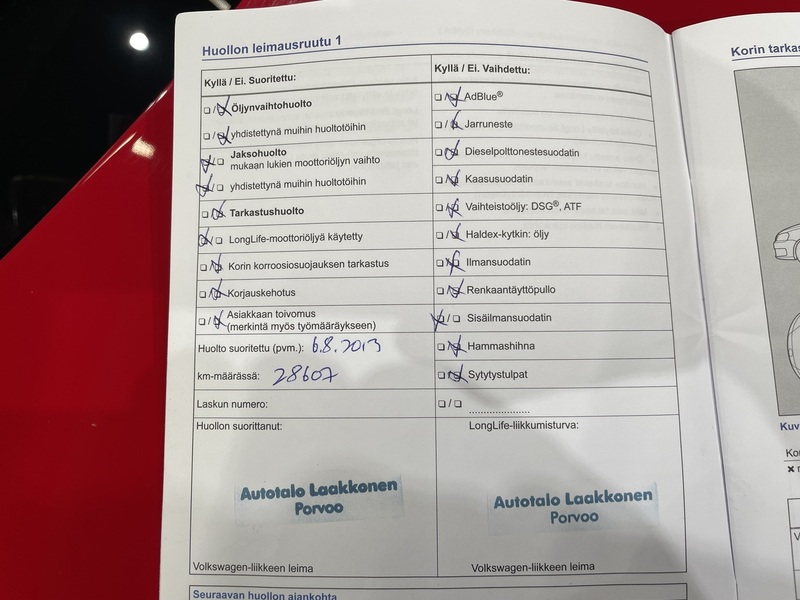 Huollon leimausruutu 1
Kyllä / Ei. Suoritettu:
Öljynvaihtohuolto
yhdistettynä muihin huoltotöihin
Jaksohuolto
mukaan lukien moottoriöljyn vaihto
yhdistettynä muihin huoltotöihin
Tarkastushuolto
LongLife-moottoriöljyä käytetty
Korin korroosiosuojauksen tarkastus
Korjauskehotus
Asiakkaan toivomus
(merkintä myös työmääräykseen)
Huolto suoritettu (pvm.): 6.8.2013
km-määrässä: 28607
Laskun numero:
Huollon suorittanut:
Autotalo Laakkonen
Porvoo
Volkswagen-liikkeen leima
Kyllä / Ei. Vaihdettu:
AdBlue®
Jarruneste
Dieselpolttonestesuodatin
Kaasusuodatin
Vaihteistoöljy: DSG®, ATF
Haldex-kytkin: öljy
Ilmansuodatin
Renkaantäyttöpullo
Sisäilmansuodatin
Hammashihna
Sytytystulpat
LongLife-liikkumisturva:
Autotalo Laakkonen
Porvoo
Volkswagen-liikkeen leima
Seuraavan huollon ajankohta
Korin